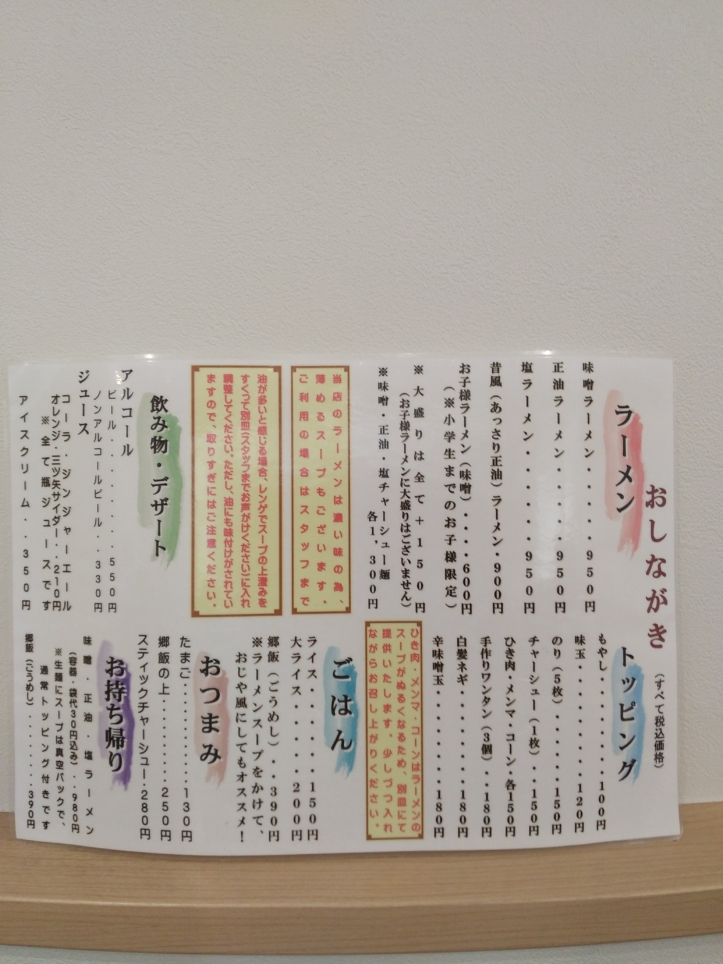 おしながき
(すべて税込価格)
ラーメン
味噌ラーメン・・・・・950円
正油ラーメン・・・・・950円
塩ラーメン・・・・・・950円
昔風(あっさり正油)ラーメン・900円
お子様ラーメン(味噌)・・・・600円
(※小学生までのお子様限定)
※大盛りは全て+150円
(お子様ラーメンに大盛りはございません)
※味噌・正油・塩チャーシュー麺
各1,300円
当店のラーメンは濃い味の為、
薄めるスープもございます。
ご利用の場合はスタッフまで
油が多いと感じる場合、レンゲでスープの上澄みを
すくって別皿(スタッフまでお声がけください)に入れ
調整してください。ただし、油にも味付けがされてい
ますので、取りすぎにはご注意ください。
飲み物・デザート
アルコール
ビール・・・・・・・・550円
ノンアルコールビール・・330円
ジュース
コーラ・ジンジャーエール
オレンジ・三ツ矢サイダー・・210円
※全て瓶ジュースです
アイスクリーム・・350円
トッピング
もやし・・・・・・・・・100円
味玉・・・・・・・・・・120円
のり(5枚)・・・・・・・150円
チャーシュー(1枚)・・・150円
ひき肉・メンマ・コーン・各150円
手作りワンタン(3個)・・180円
白髪ネギ・・・・・・・・180円
辛味噌玉・・・・・・・・180円
ひき肉・メンマ・コーンはラーメンの
スープがぬるくなるため、別皿にて
提供いたします。少しづつ入れ
ながらお召し上がりください。
ごはん
ライス・・・・・・・150円
大ライス・・・・・・200円
郷飯(ごうめし)・・390円
※ラーメンスープをかけて、
おじや風にしてもオススメ!
おつまみ
たまご・・・・・・・・・130円
郷飯の上・・・・・・・・250円
スティックチャーシュー・280円
お持ち帰り
味噌・正油・塩ラーメン
(容器・袋代30円込み)・・980円
※生麺にスープは真空パックで、
通常トッピング付きです
郷飯(ごうめし)・・・・・・・390円